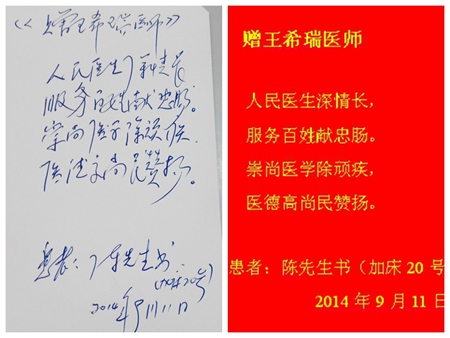 《赠王希瑞医师》
人民医生深情长
服务百姓献忠肠。
崇尚医学除顽疾，
医德高尚民赞扬。
患者：陈先生书
（加床20号）
2014年9月11日
赠王希瑞医师
人民医生深情长，
服务百姓献忠肠。
崇尚医学除顽疾，
医德高尚民赞扬。
患者：陈先生书（加床 20 号
2014 年 9 月 11 日